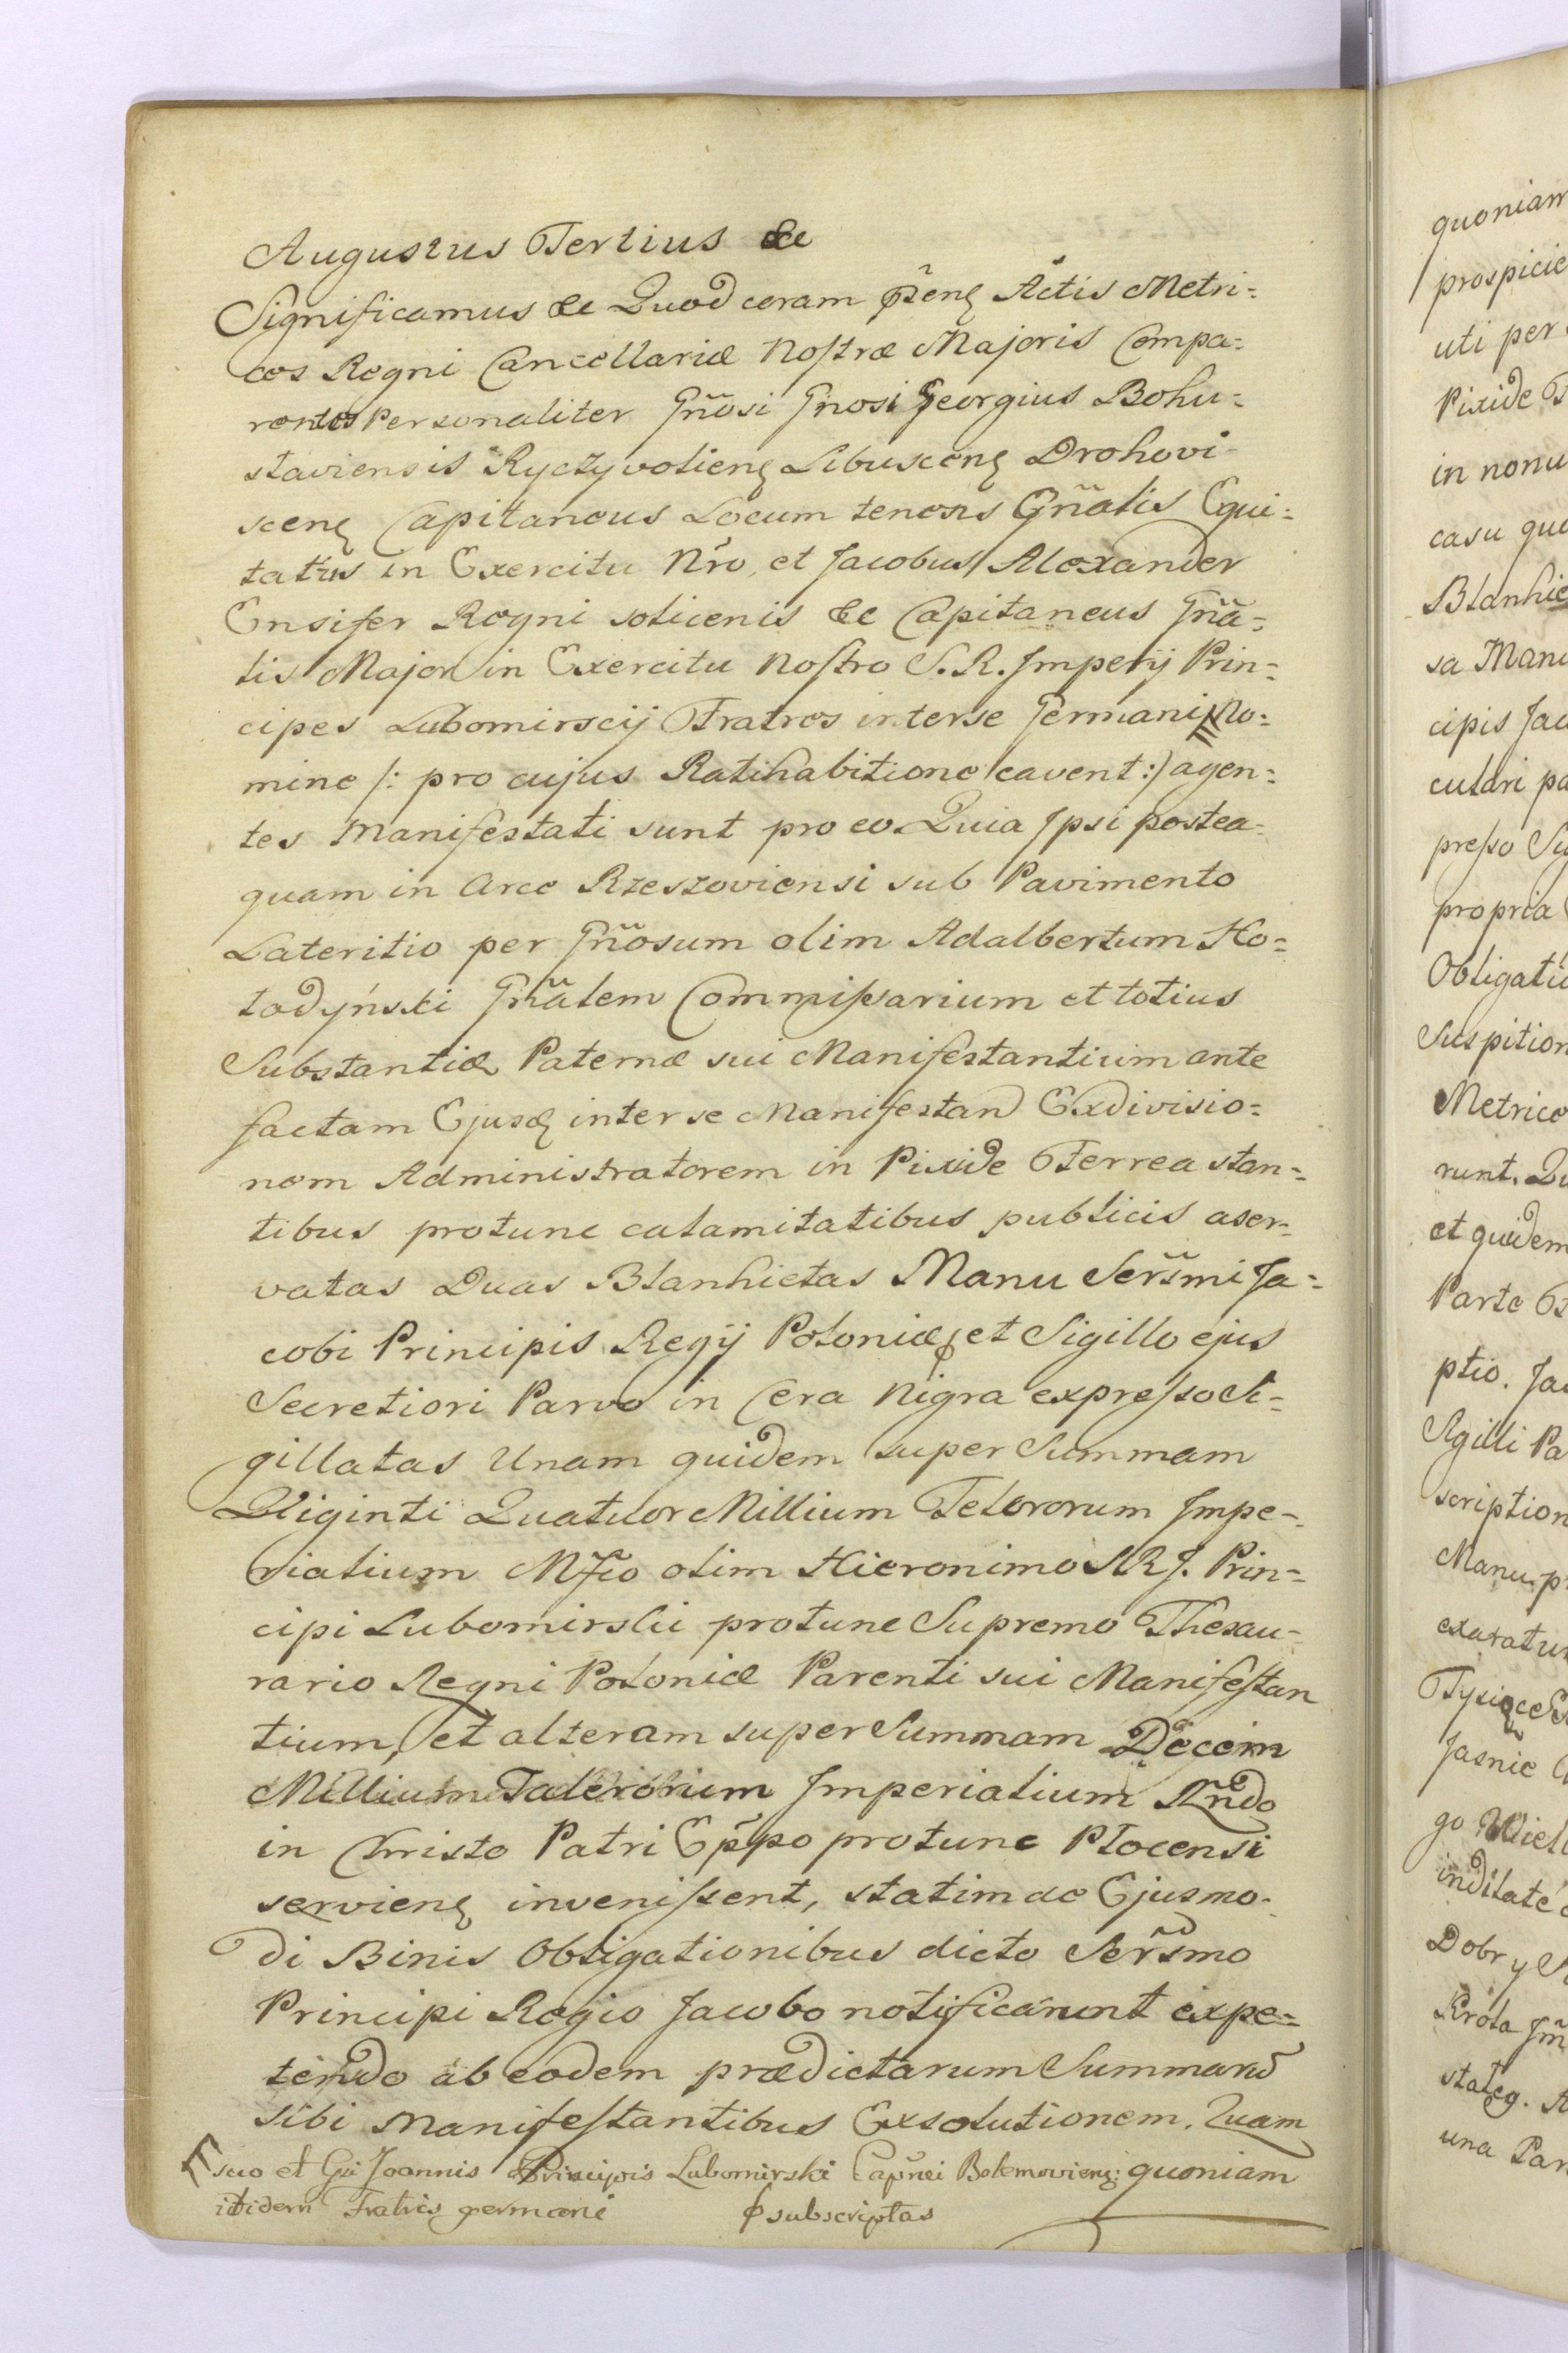 Augustus Tertius &c
Significamus &c Quod coram p̃senʒ Actis Metri=
ces Regni Cancellariæ Nostræ Majoris Compa=
rentes Personaliter Gñosi Gnosi Georgius Bohu=
staviensis Ryczyvoliens Libuscens Drohovi-
scens Capitaneus Locum tenens Gñalis Equi=
tatus in Exercitu Nr̃o, et Jacobus Alexander
Ensifer Regni soticenis &c Capitaneus Gñã=
lis Major in Exercitu Nostro S. R. Imperij Prin=
cipes Lubomirscij Fratres interse Germani No=
mine /: pro cujus Ratihabitione cavent :/ agen=
tes Manifestati sunt pro eo. Quia Ipsi postea=
quam in Arce Rzeszoviensi sub Pavimento
Lateritio per Gñosum olim Adalbertum Ho=
todyński Gñalem Commissarium et totius
Substantiæ Paternæ sui Manifestantium ante
factam Ejusd inter se Manifestan Exdivisio=
nem Administratorem in Pixide Ferrea stan=
tibus protunc calamitatibus publicis aser=
vatas Duas Blanhietas Manu Serm̃i Ja=
cobi Principis Regij Poloniæ ⌽ et Sigillo ejus
Secretiori Parvo in Cera Nigra expresso Si=
gillatas Unam quidem super Summam
Viginti Quatuor Millium Telororum Impe=
rialium Mf̃co olim Hieronimo S R J. Prin=
cipi Lubomirski protunc Supremo Thesau=
rario Regni Poloniæ Parenti sui Manifestan
tium, et alteram super Summam Decem
Millium Talerorum Imperialium Rñdo
in Christo Patri Ep̃po protunc Plocensi
serviens invenissent, statim de Ejusmo-
di Binis Obligationibus dicto Serm̃o
Principi Regio Jacobo notificarunt expe=
tendo ab eodem prædictarum Summarũ
sibi Manifestantibus Exsolutionem. Quam
suo et Gñi Joannis Principis Lubomirski Capñei Bolemoviens: quoniam
itidem Fratris germani ⌽ subscriptas
quoniam
prospicie
uti per
Pixide
in nonu
casu que
Blanhie
sa Manu
cipis Jac
culari pa
presso Si
propria
Obligatio
Suspition
Metrice
runt. Qu
et quidem
Parte
ptio. Jac
Sigilli Pa
scription
Manu p
exaratum
Tysięce
Jasnie
go Wiel
inditate
Dobr y
Krola Jm̃
stateg. A
una Par